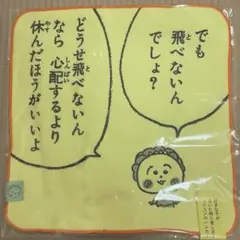 でも
飛べないん
でしょ?
どうせ飛べないん
なら 心配するより
休んだほうがいいよ